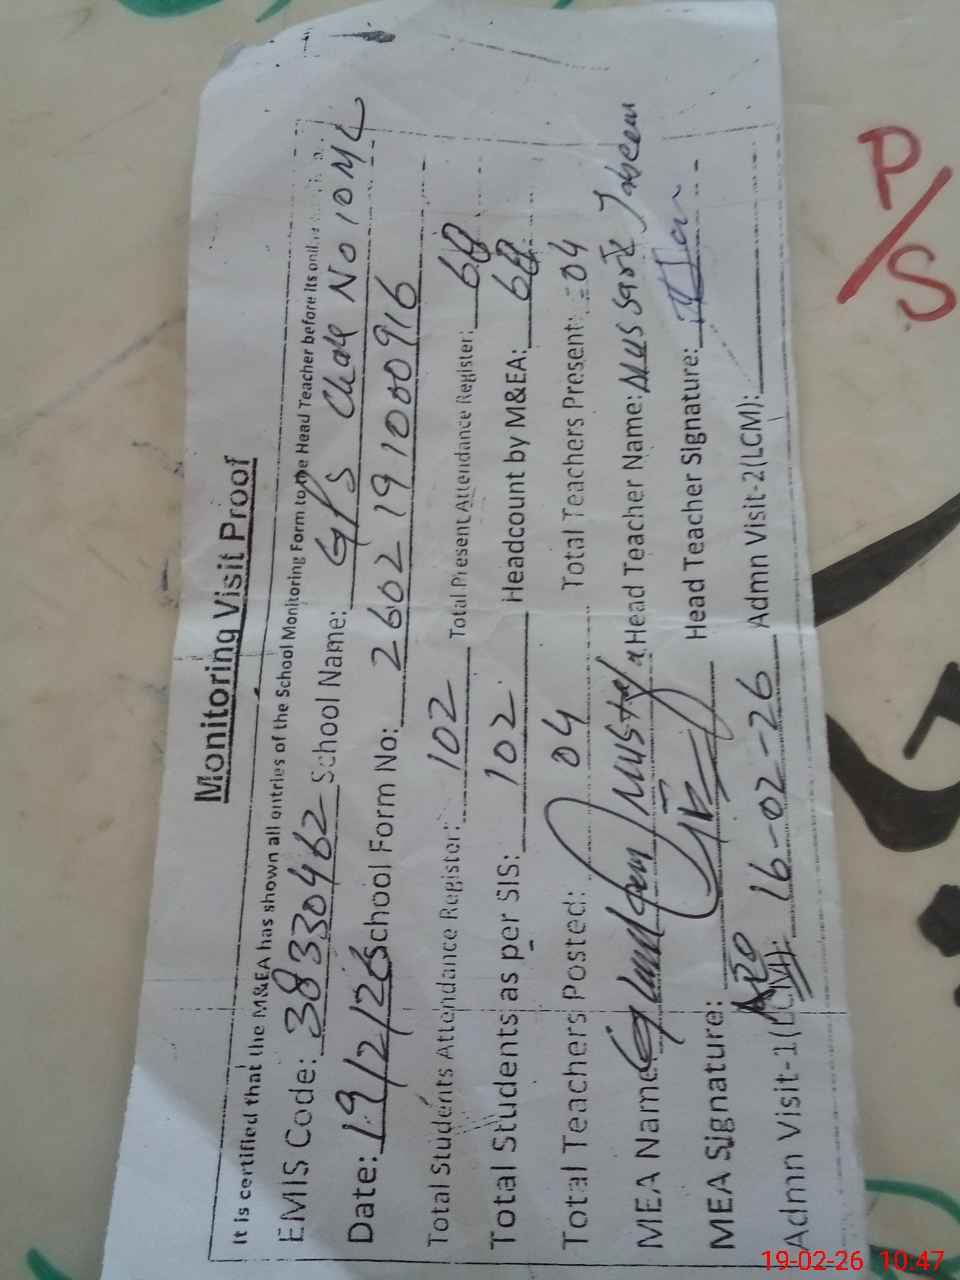 Monitoring Visit Proof
It is certified that the M&EA has shown all entries of the School Monitoring Form to the Head Teacher before its
EMIS Code: 38330462 School Name: GPS Chak No 10 ML
Date: 19/2/26 School Form No: 2602191000916
Total Students Attendance Register: 102 Total Present Attendance Register: 68
Total Students as per SIS: 102 Headcount by M&EA: 68
Total Teachers Posted: 04 Total Teachers Present: 04
MEA Name: Ghulam Mustafa Head Teacher Name: Mussarat
MEA Signature: Head Teacher Signature:
Admn Visit-1(LCM): 16-02-26 Admn Visit-2(LCM):
P/S
19-02-26 10:47